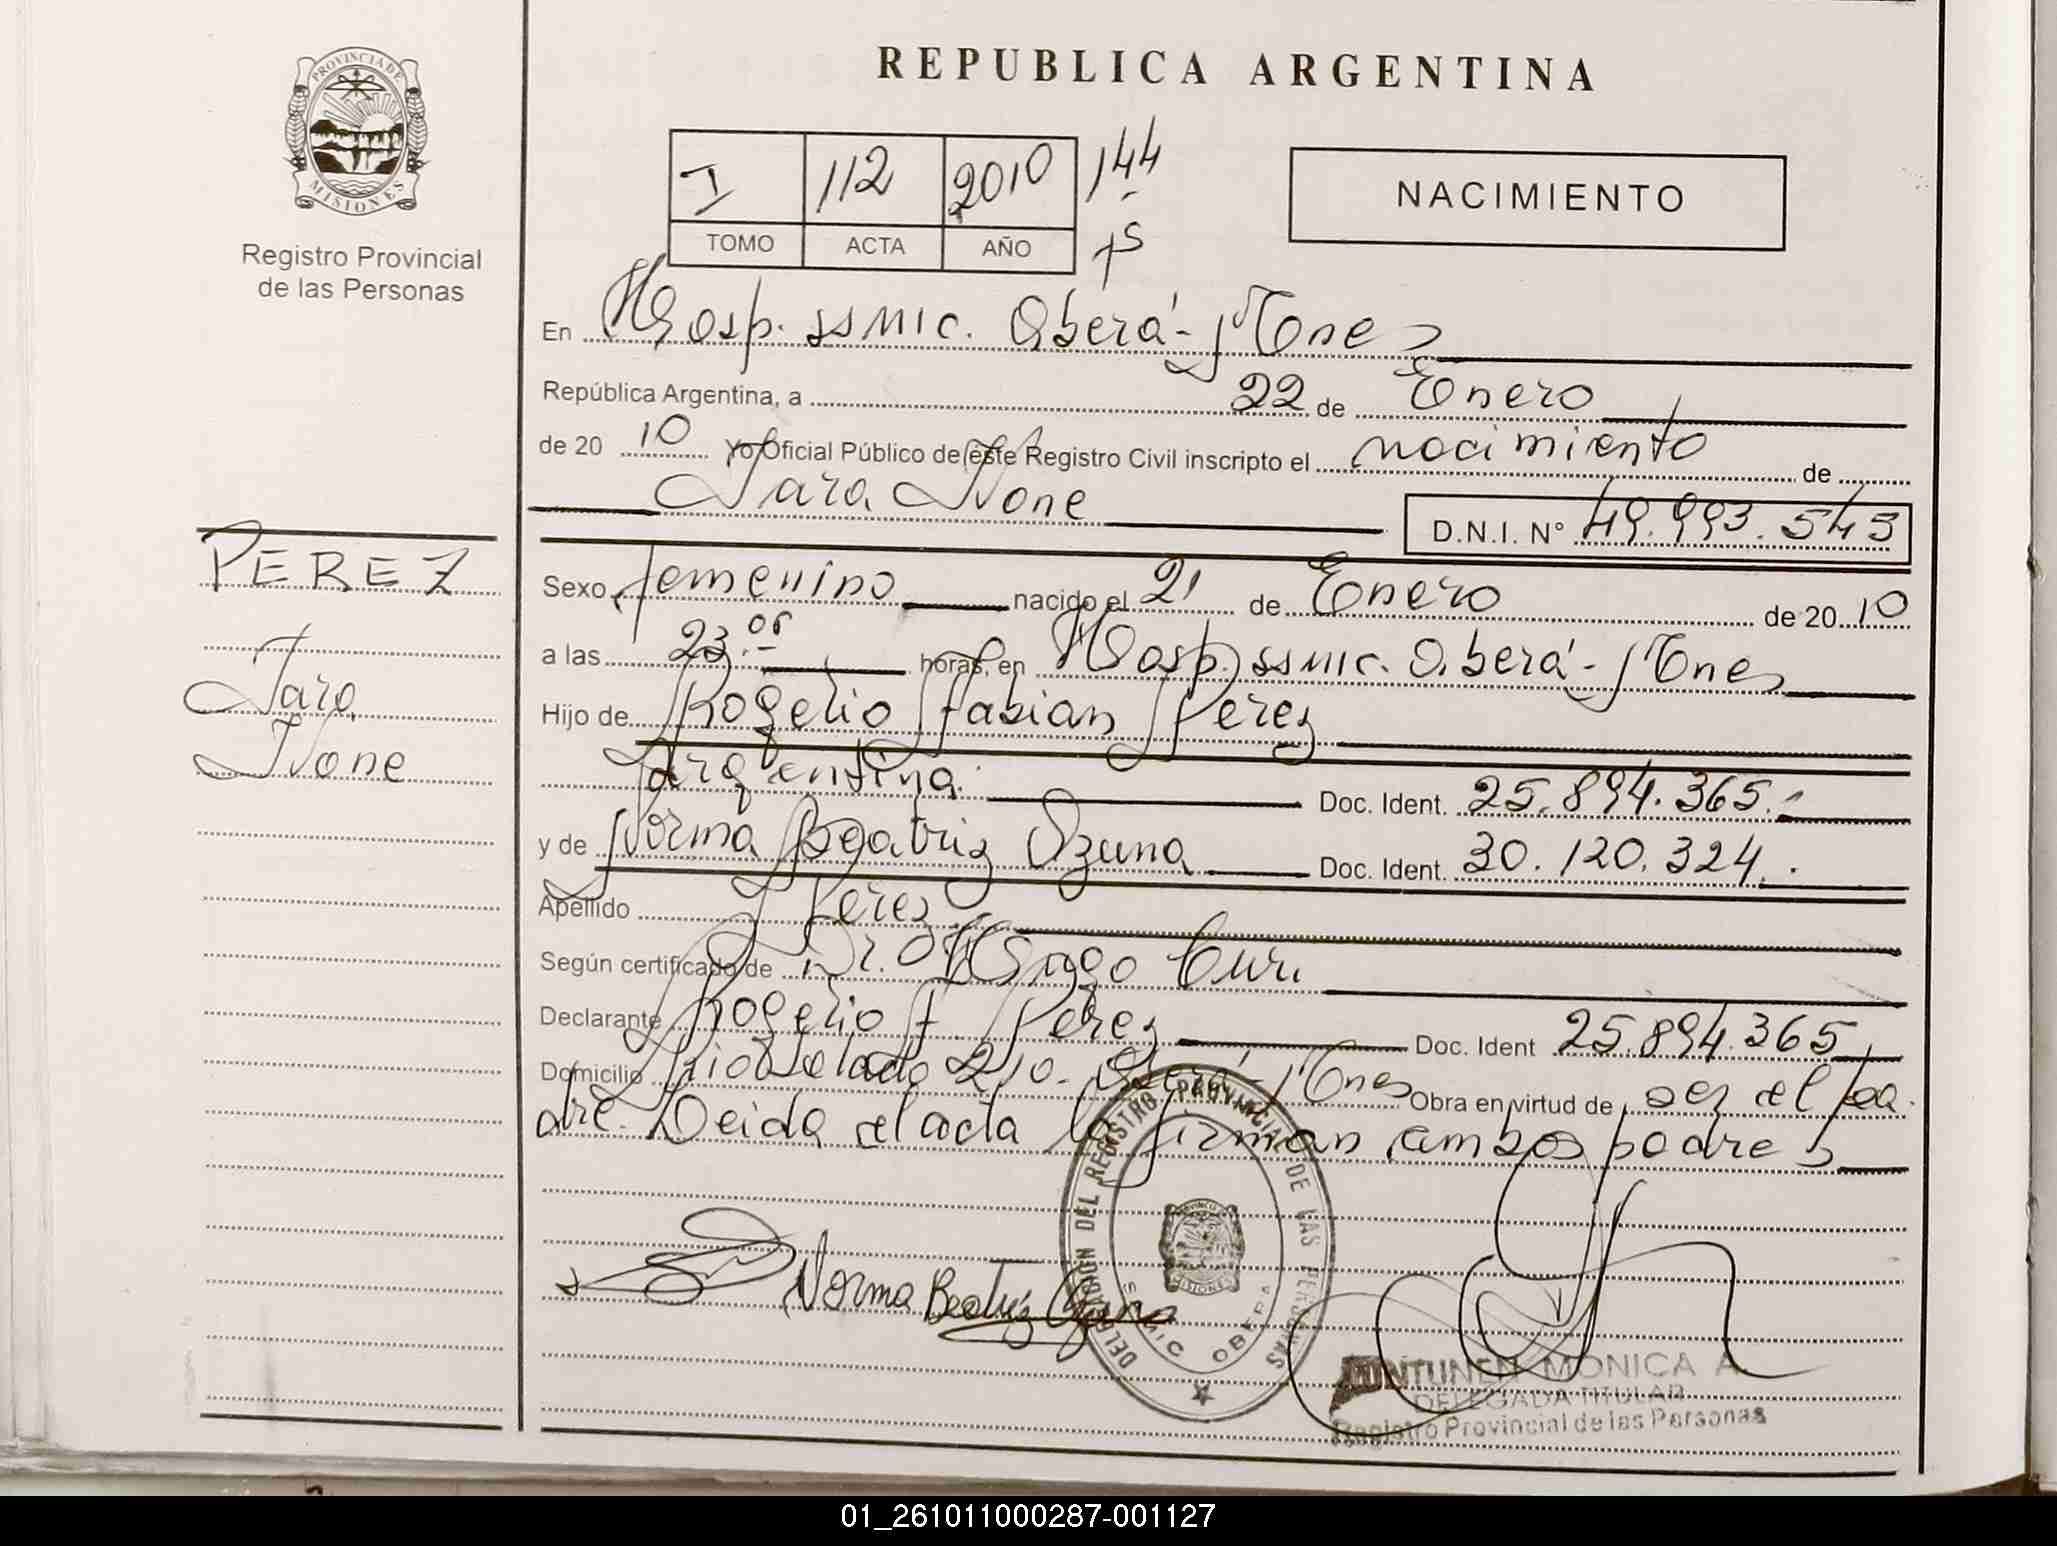 PROVINCIA DE
MISIONES
Registro Provincial
de las Personas
REPUBLICA ARGENTINA
I 112 2010 144
TOMO ACTA AÑO
NACIMIENTO
En Hosp. SSMIC. Oberá - Mnes
República Argentina, a 22 de Enero
de 20 10 Yo Oficial Público de este Registro Civil inscripto el nacimiento de
Iara Ivone D.N.I. Nº 49.993.545
PEREZ
Iara
Ivone
Sexo femenino nacido el 21 de Enero de 20 10
a las 23.05 horas, en Hosp. SSMIC. Oberá - Mnes
Hijo de Rogelio Fabian Perez
argentina. Doc. Ident. 25.894.365.-
y de Norma Beatriz Ozuna Doc. Ident. 30.120.324.
Apellido Perez
Según certificado de Dr. Hugo Curi
Declarante Rogelio F Perez Doc. Ident 25.894.365
Domicilio Rio Delado 210. Oberá - Mnes Obra en virtud de ser el pa
dre. Leida el acta la firman ambos padres
Norma Beatriz Ozuna
DELEGACION DEL REGISTRO PROVINCIAL DE LAS PERSONAS
SSMIC OBERA
MONICA A
DELEGADA TITULAR
Registro Provincial de las Personas
01_261011000287-001127